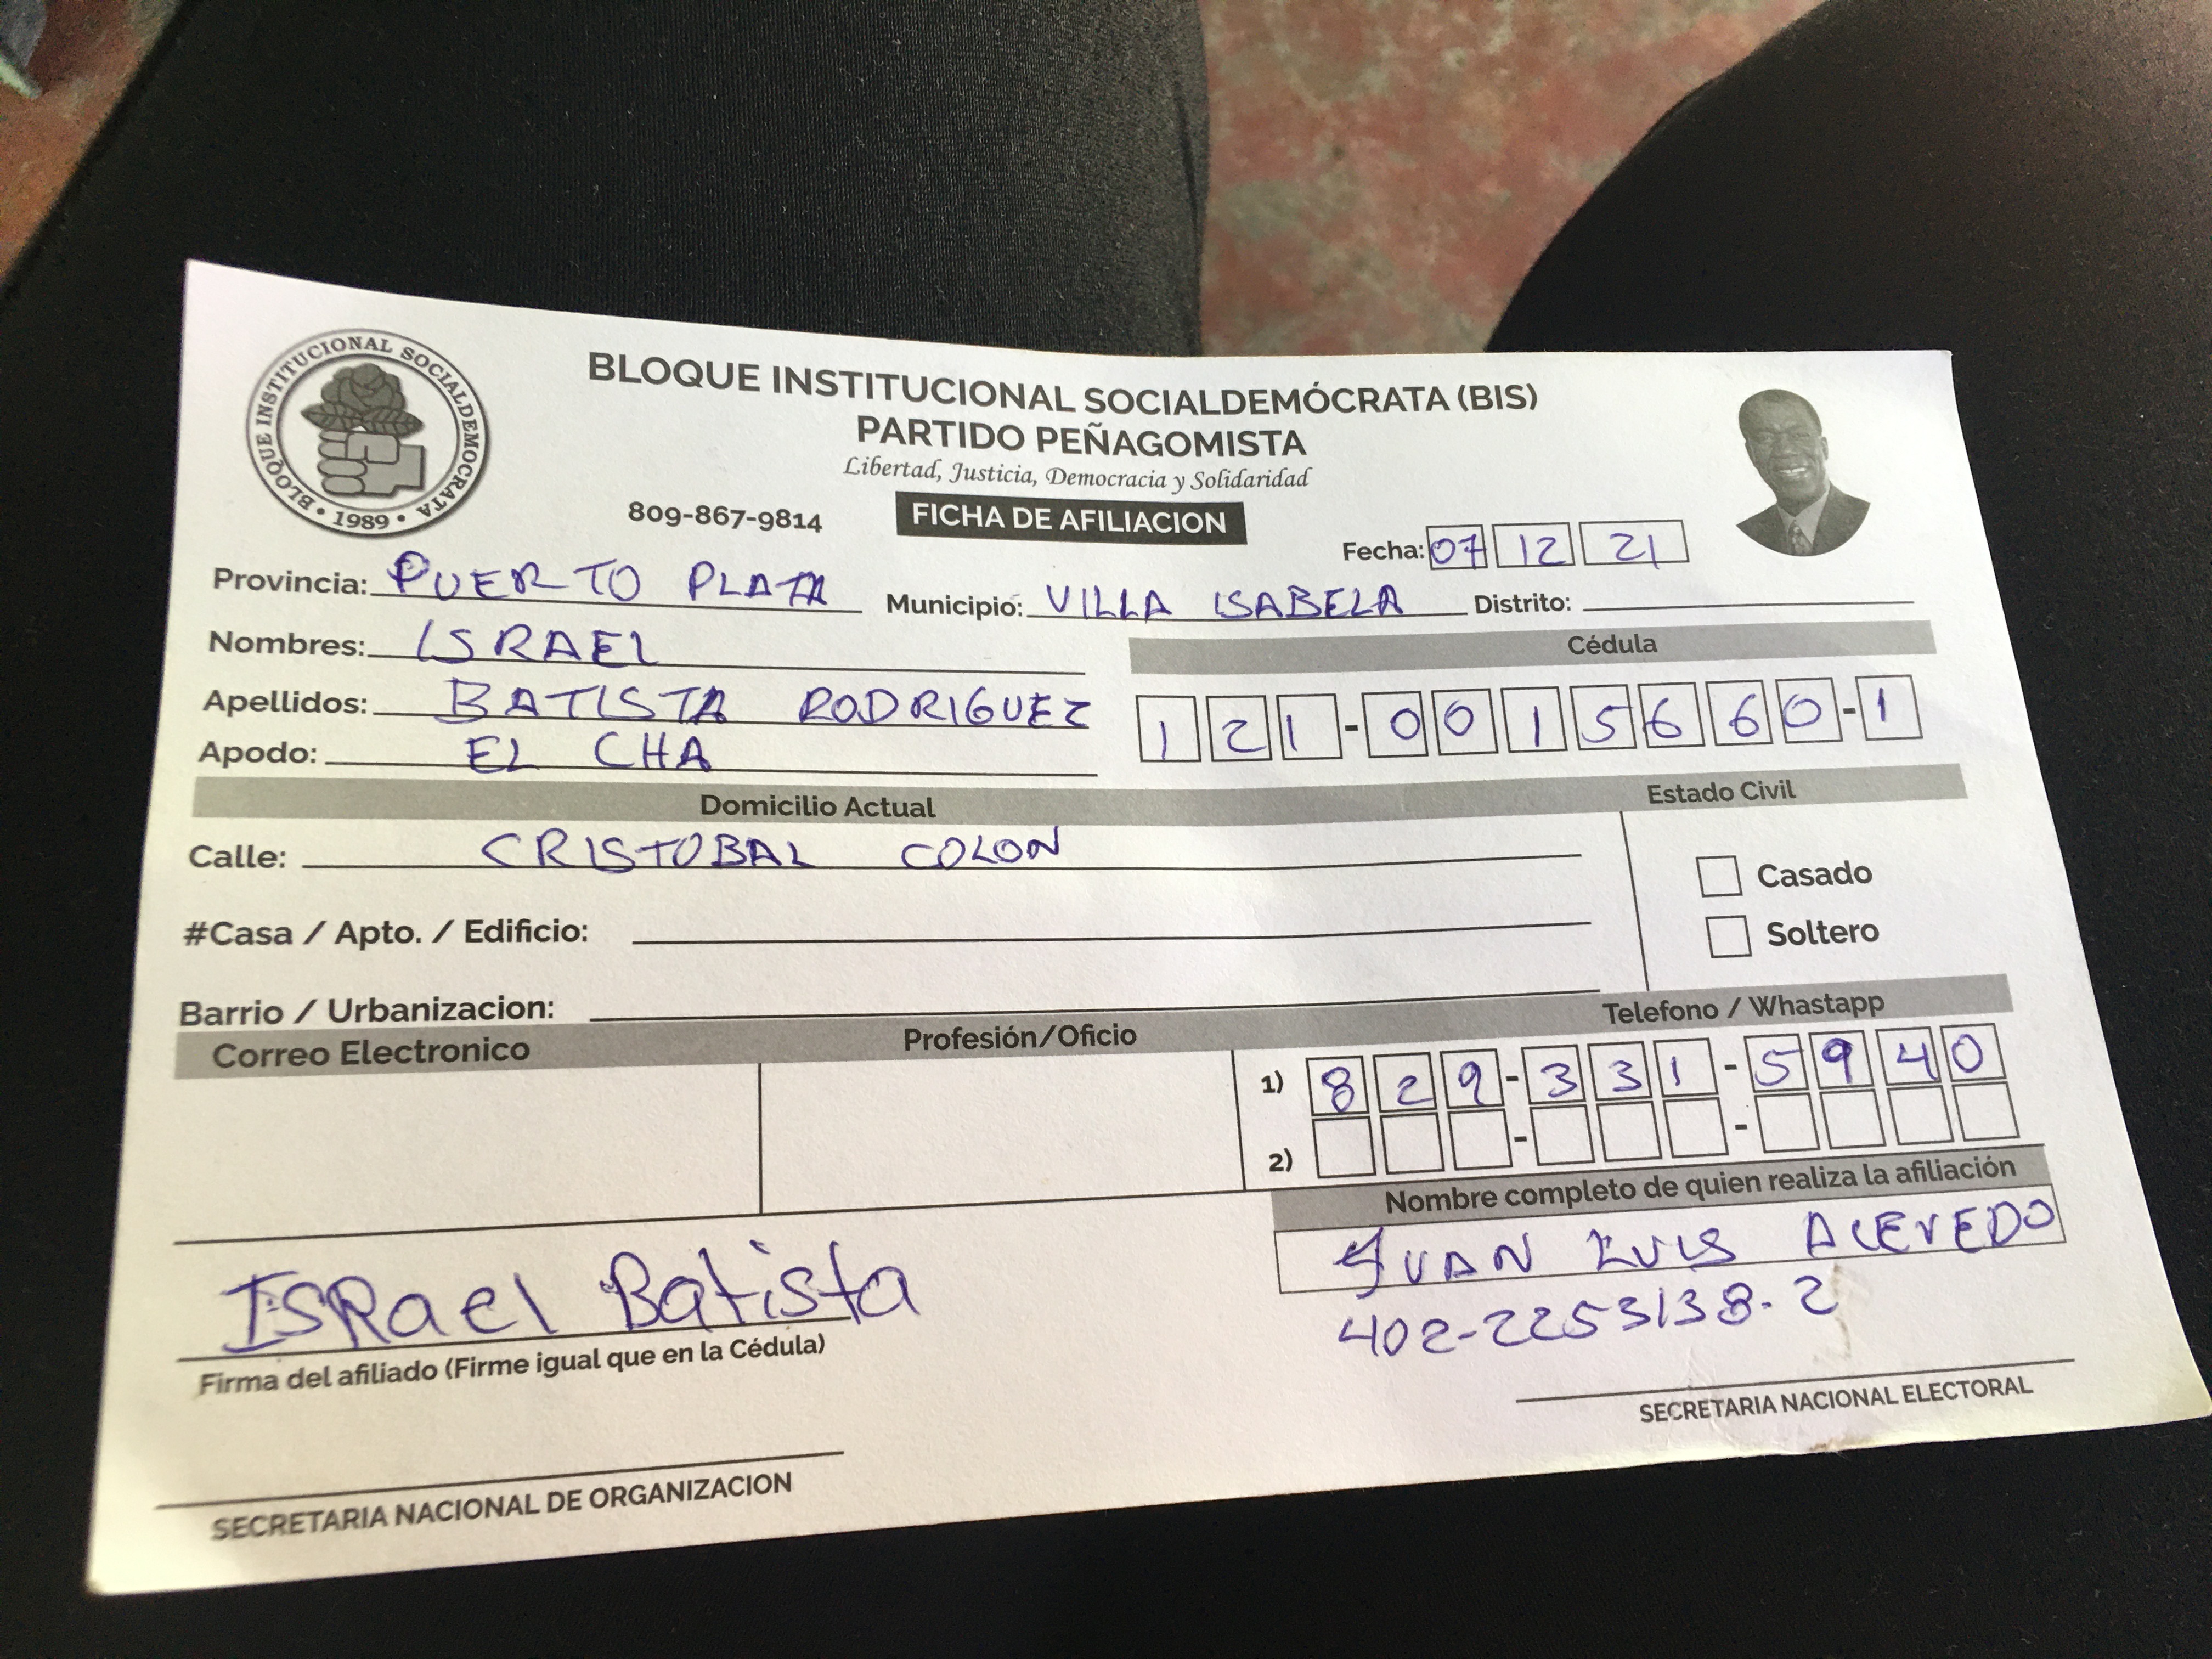 BLOQUE INSTITUCIONAL SOCIALDEMOCRATA
• 1989 •
BLOQUE INSTITUCIONAL SOCIALDEMÓCRATA (BIS)
PARTIDO PEÑAGOMISTA
Libertad, Justicia, Democracia y Solidaridad
809-867-9814 FICHA DE AFILIACION
Fecha: 07 12 21
Provincia: PUERTO PLATA Municipio: VILLA ISABELA Distrito:
Nombres: ISRAEL
Cédula
Apellidos: BATISTA RODRIGUEZ
121-0015660-1
Apodo: EL CHA
Domicilio Actual Estado Civil
Calle: CRISTOBAL COLON
Casado
#Casa / Apto. / Edificio:
Soltero
Barrio / Urbanizacion:
Correo Electronico Profesión/Oficio Telefono / Whastapp
1) 829-331-5940
2) - -
Nombre completo de quien realiza la afiliación
JUAN LUIS ACEVEDO
402-2253138-2
ISRael Batista
Firma del afiliado (Firme igual que en la Cédula)
SECRETARIA NACIONAL ELECTORAL
SECRETARIA NACIONAL DE ORGANIZACION